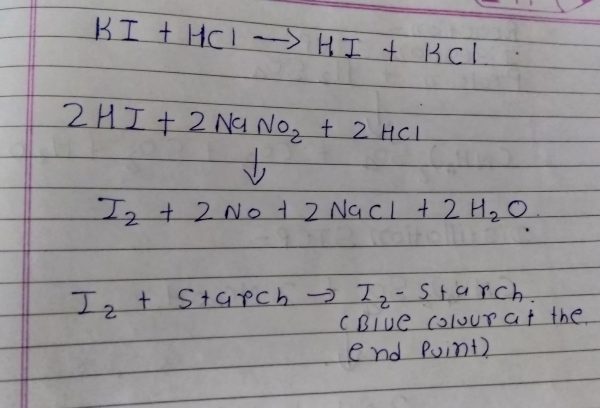 KI + HCl → HI + KCl.
2HI + 2NaNO₂ + 2HCl
↓
I₂ + 2NO + 2NaCl + 2H₂O.
I₂ + Starch → I₂ - Starch.
(Blue colour at the
end point)